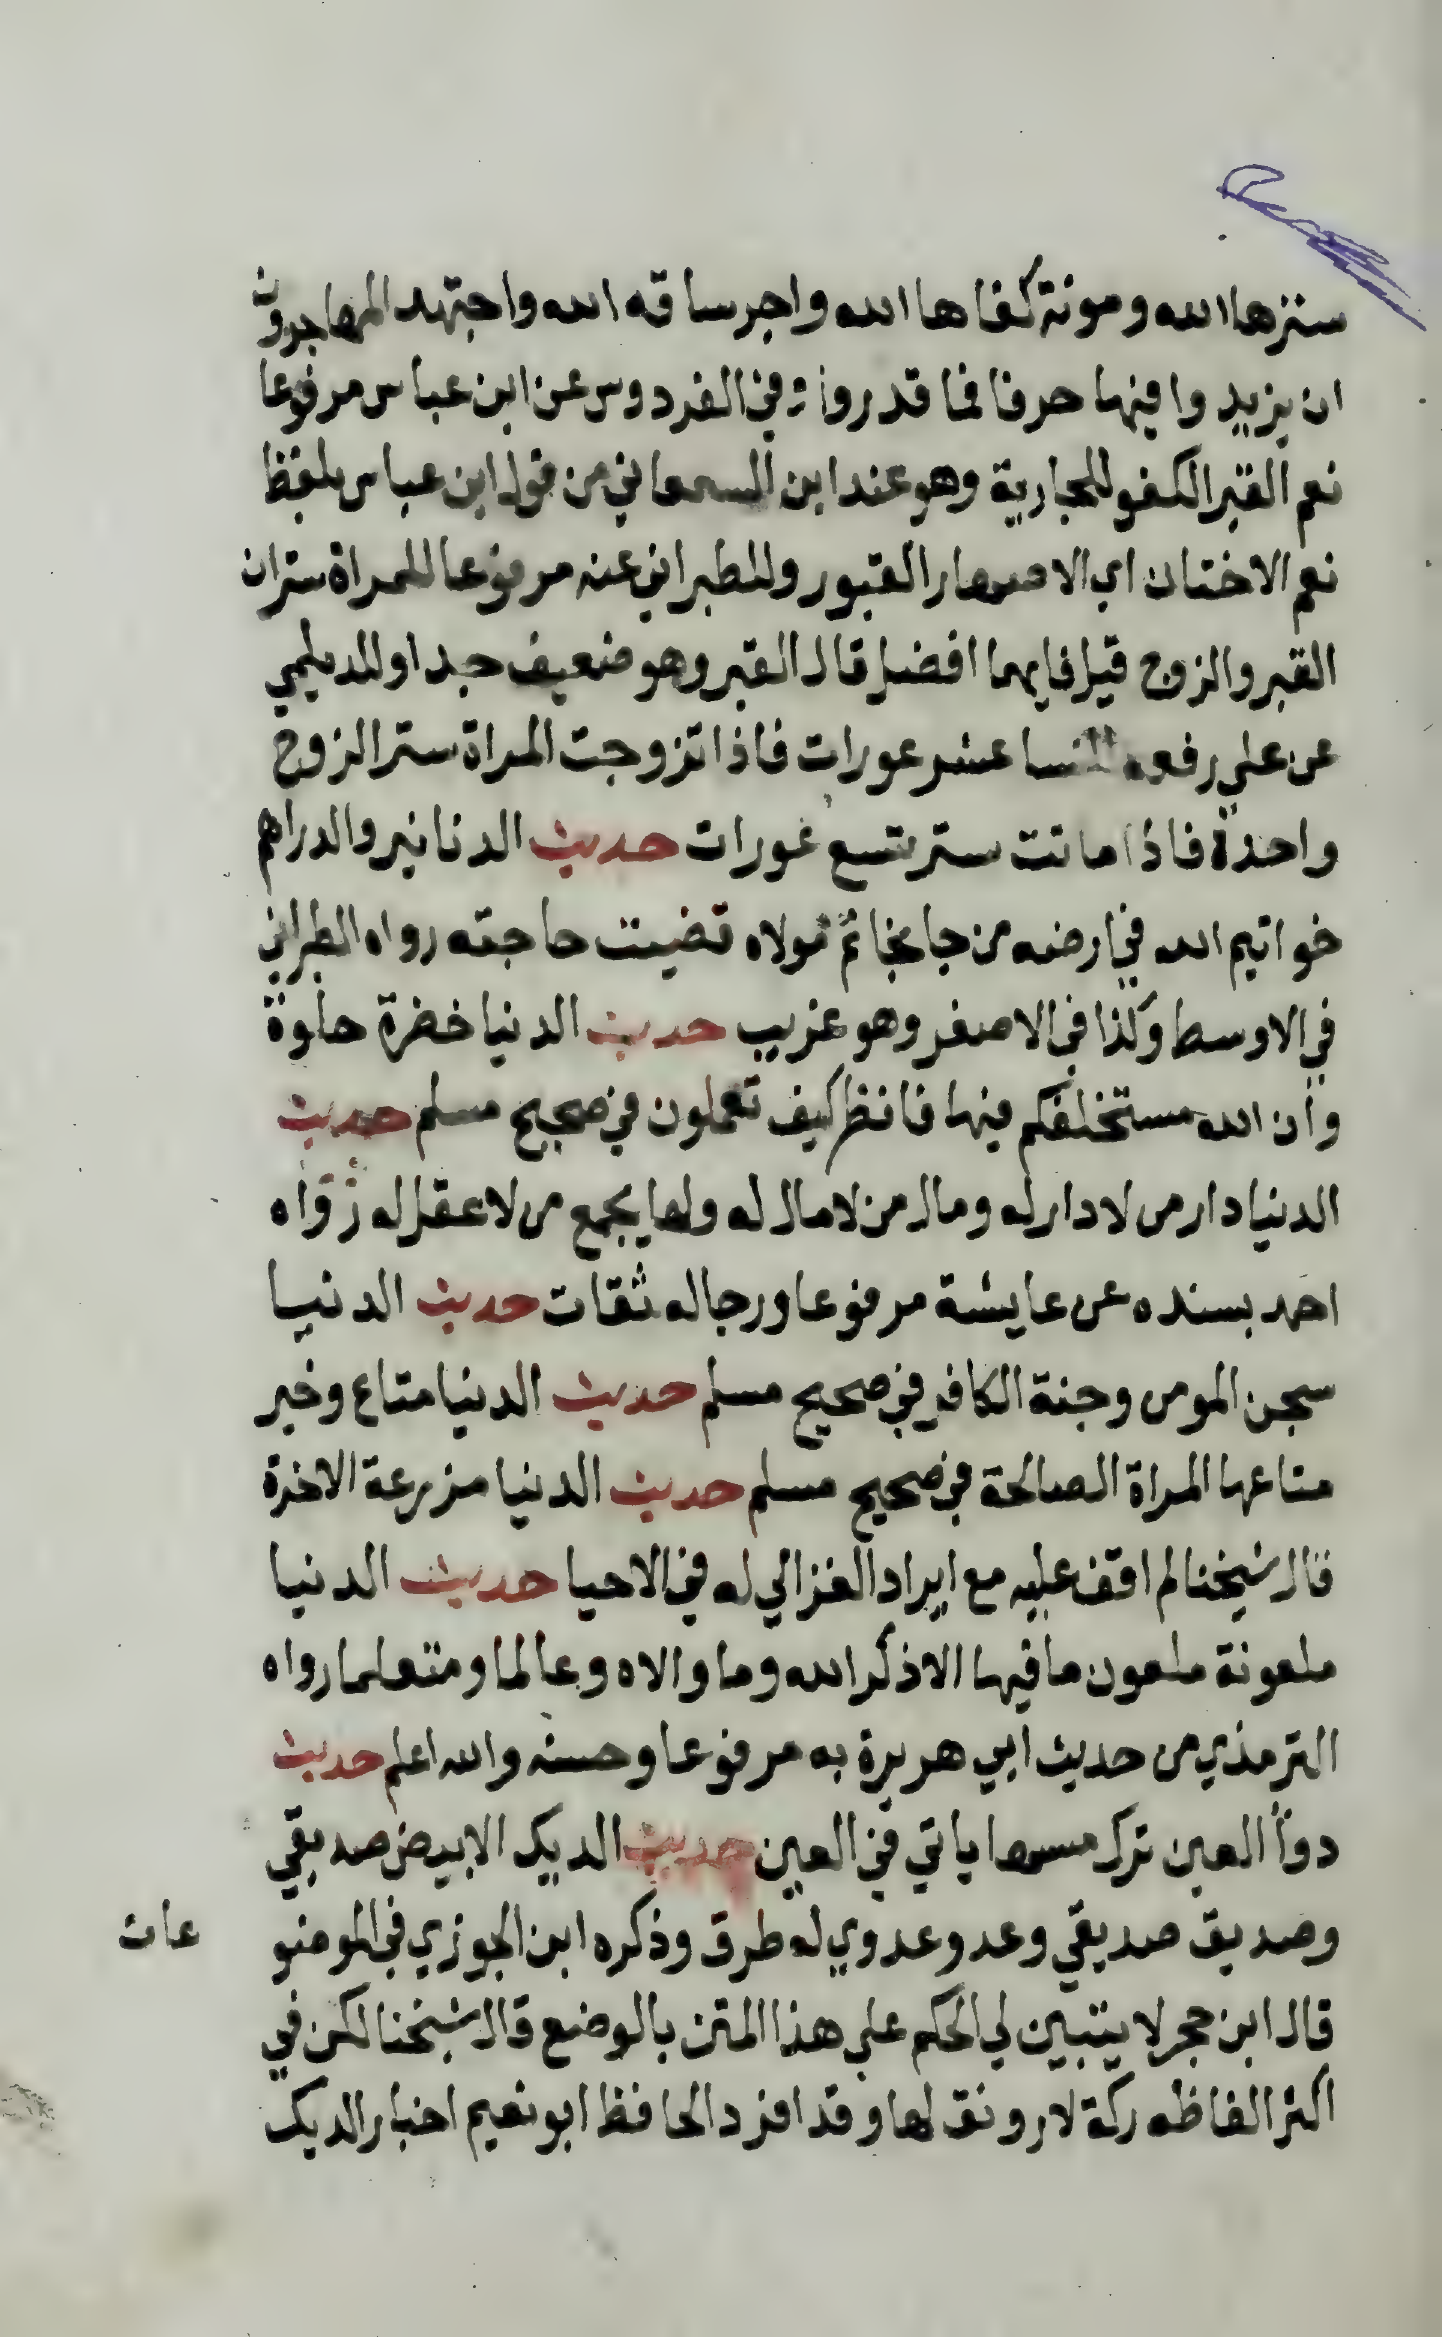 سترها الله ومونة كفاها الله واجر ساقه الله واجتهد المهاجرون
ان يزيدوا فيها حرفا فما قدروا وفي الفردوس عن ابن عباس مرفوعا
نعم القبر الكفو للجارية وهو عند ابن السمعاني من قول ابن عباس بلفظ
نعم الاختان اي الاصهار القبور وللطبراني عنه مرفوعا للمراة ستران
القبر والزوج قيل فايهما افضل قال القبر وهو ضعيف جدا وللديلمي
عن علي رفعه للنسا عشر عورات فاذا تزوجت المراة ستر الزوج
واحدة فاذا ماتت ستر تسع عورات حديث الدنانير والدراهم
خواتيم الله في ارضه من جا بخاتم مولاه قضيت حاجته رواه الطبراني
في الاوسط وكذا في الاصغر وهو غريب حديث الدنيا خضرة حلوة
وان الله مستخلفكم فيها فانظر كيف تعملون في صحيح مسلم حديث
الدنيا دار من لا دار له ومال من لا مال له ولها يجمع من لا عقل له رواه
احمد بسنده عن عايشة مرفوعا ورجاله ثقات حديث الدنيا
سجن المومن وجنة الكافر في صحيح مسلم حديث الدنيا متاع وخير
متاعها المراة الصالحة في صحيح مسلم حديث الدنيا مزرعة الاخرة
قال شيخنا لم اقف عليه مع ايراد الغزالي له في الاحيا حديث الدنيا
ملعونة ملعون ما فيها الا ذكر الله وما والاه وعالما ومتعلما رواه
الترمذي من حديث ابي هريرة به مرفوعا وحسنه والله اعلم حديث
دوا العين ترك مسها ياتي في العين حديث الديك الابيض صديقي
وصديق صديقي وعدو عدوي له طرق وذكره ابن الجوزي في الموضو عات
قال ابن حجر لا يتبين لي الحكم علي هذا المتن بالوضع قال شيخنا لكن في
اكثر الفاظه ركة لا رونق لها وقد افرد الحافظ ابو نعيم اخبار الديك